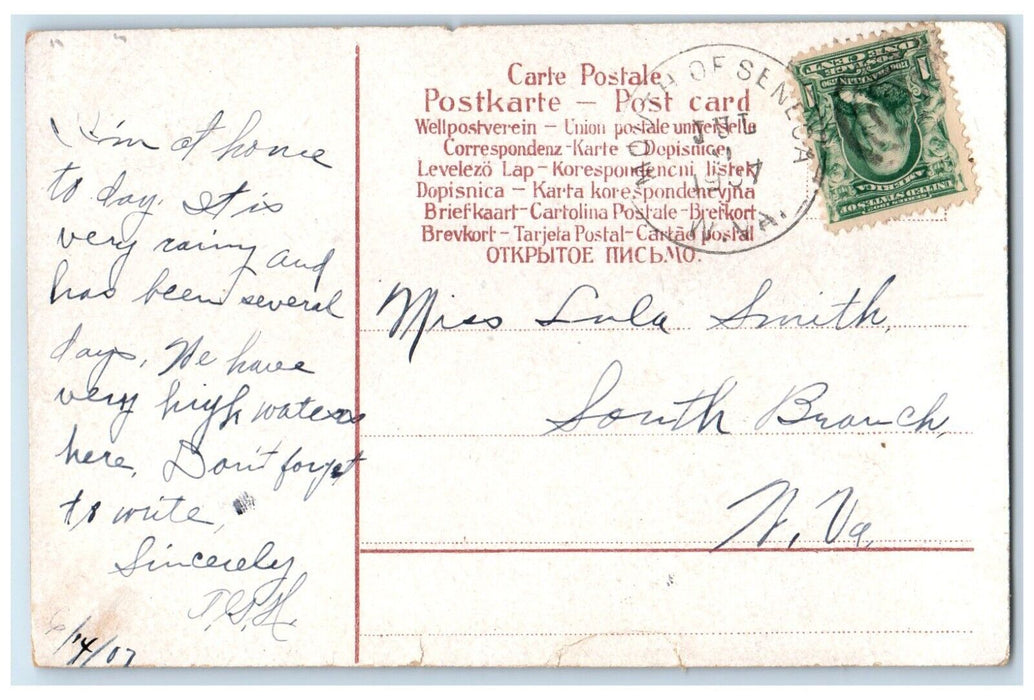 I'm at home
to day. It is
very rainy and
has been several
days. We have
very high waters
here. Don't forget
to write,
Sincerely
6/14/07
Carte Postale
Postkarte – Post card
Weltpostverein – Union postale universelle
Correspondenz-Karte – Dopisnice
Levelező Lap – Korespondencni listek
Dopisnica – Karta korespondencyjna
Briefkaart – Cartolina Postale – Brefkort
Brevkort – Tarjeta Postal – Cartão postal
ОТКРЫТОЕ ПИСЬМО.
MOUTH OF SENECA
W. VA.
POSTAGE
ONE CENT
1 1
UNITED STATES OF
AMERICA
Miss Lula Smith,
South Branch,
W. Va.